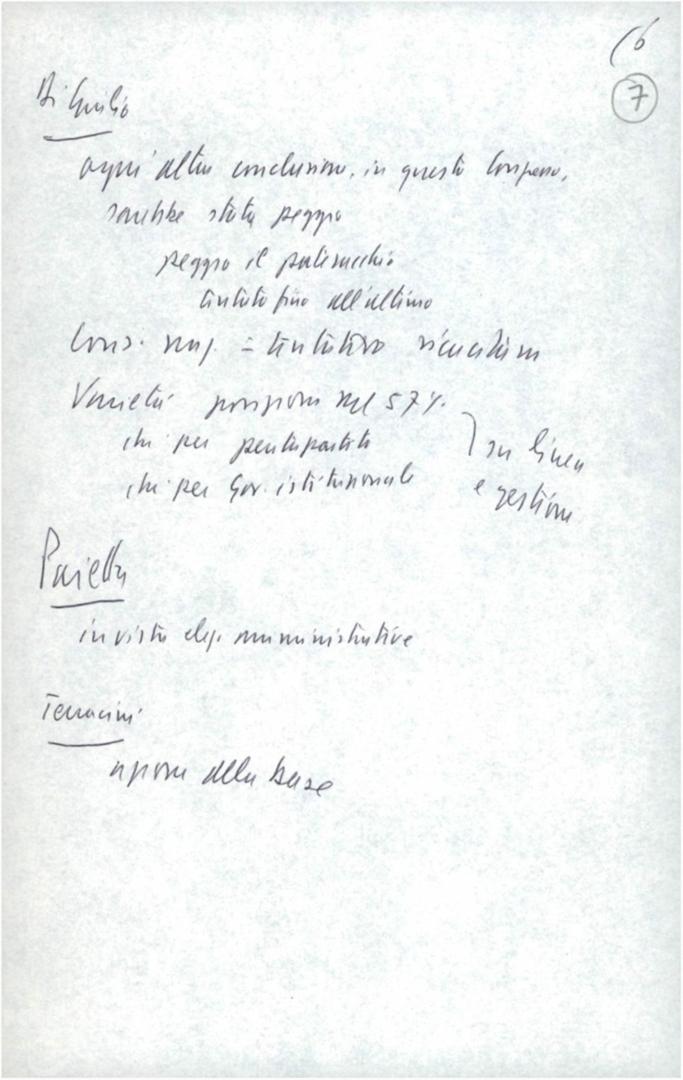 6
7
Di Giulio
ogni altra conclusione, in questo Congresso,
sarebbe stata peggio
peggio il patteracchio
tentato fino all'ultimo
Cons. naz. = tentativo
Varietà posizioni nel 57%.
chi per pentapartito
chi per Gov. istituzionale
su linea
e gestione
Pajetta
in vista elez. amministrative
Terracini
azione alla base